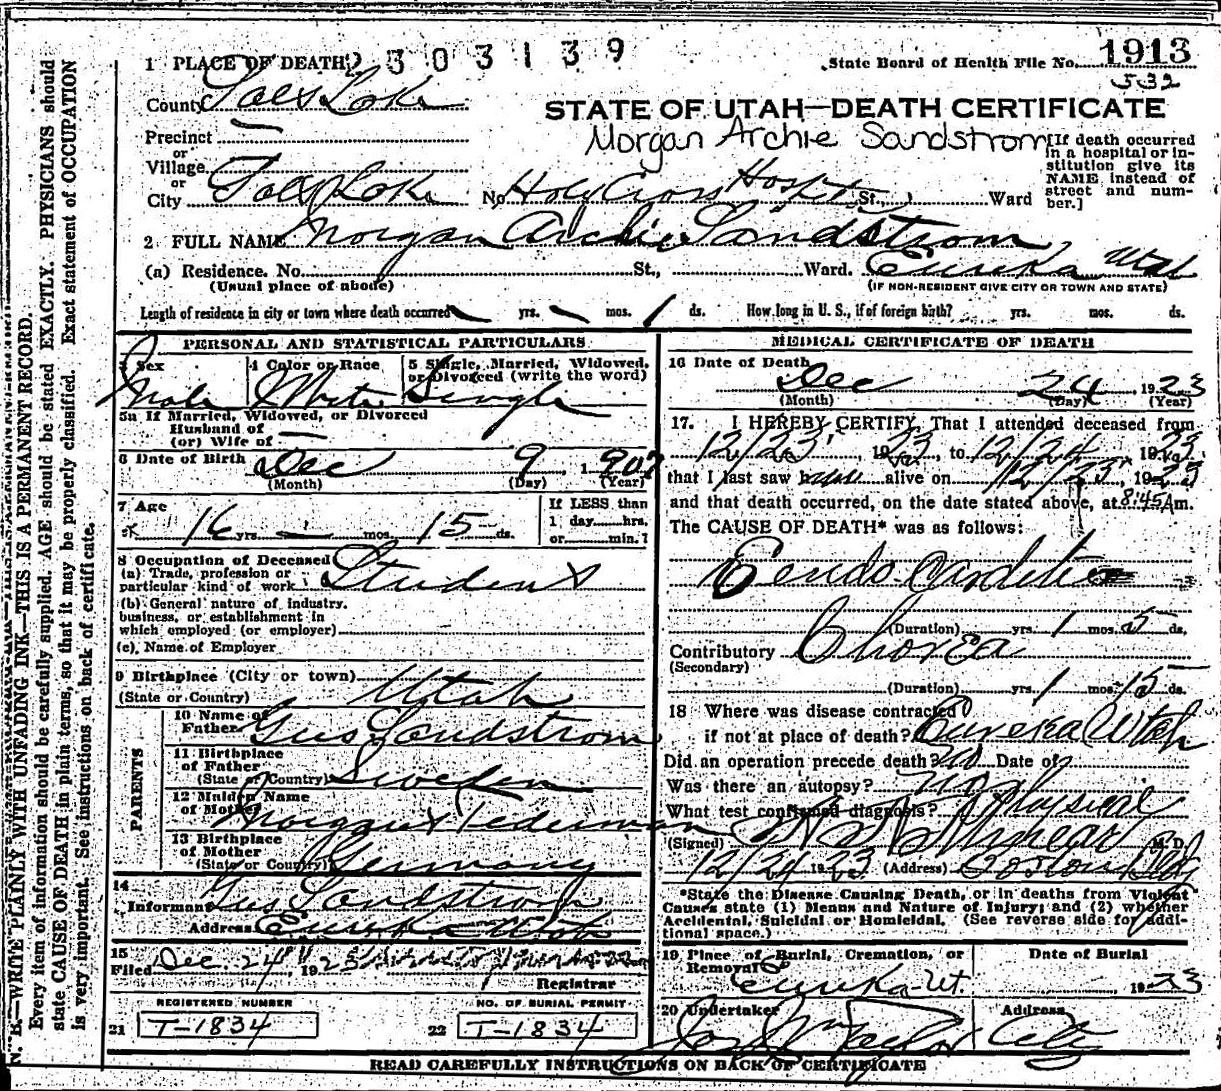 2303139
1 PLACE OF DEATH
State Board of Health File No. 1913
532
County Salt Lake
STATE OF UTAH—DEATH CERTIFICATE
Morgan Archie Sandstrom
Precinct
or
Village
or
City Salt Lake No. Holy Cross Hospital St., Ward
[If death occurred
in a hospital or in-
stitution give its
NAME instead of
street and num-
ber.]
2 FULL NAME Morgan Archie Sandstrom
(a) Residence. No. St., Ward. Eureka Utah
(Usual place of abode) (IF NON-RESIDENT GIVE CITY OR TOWN AND STATE)
Length of residence in city or town where death occurred — yrs. — mos. 1 ds. How long in U. S., if of foreign birth? yrs. mos. ds.
PERSONAL AND STATISTICAL PARTICULARS
3 Sex Male
4 Color or Race White
5 Single, Married, Widowed,
or Divorced (write the word)
Single
5a If Married, Widowed, or Divorced
Husband of —
(or) Wife of
6 Date of Birth Dec 9 1907
(Month) (Day) (Year)
7 Age
16 yrs. — mos. 15 ds.
If LESS than
1 day hrs.
or min.?
8 Occupation of Deceased
(a) Trade, profession or
particular kind of work Student
(b) General nature of industry.
business, or establishment in
which employed (or employer)
(c) Name of Employer
9 Birthplace (City or town)
(State or Country) Utah
PARENTS
10 Name of
Father Gus Sandstrom
11 Birthplace
of Father
(State or Country) Sweden
12 Maiden Name
of Mother
13 Birthplace
of Mother
(State or Country) Germany
14
Informant Gus Sandstrom
Address Eureka Utah
15
Filed Dec. 24, 1923
Registrar
REGISTERED NUMBER
21 T-1834
NO. OF BURIAL PERMIT
22 T-1834
MEDICAL CERTIFICATE OF DEATH
16 Date of Death
Dec 24 1923
(Month) (Day) (Year)
17. I HEREBY CERTIFY, That I attended deceased from
12/23, 1923, to 12/24, 1923
that I last saw him alive on 12/23, 1923
and that death occurred, on the date stated above, at 8:45 Am.
The CAUSE OF DEATH* was as follows:
Endo Carditis
(Duration) yrs. 1 mos. 5 ds.
Contributory Chorea
(Secondary)
(Duration) yrs. 1 mos. 15 ds.
18 Where was disease contracted
if not at place of death? Eureka Utah
Did an operation precede death? No Date of
Was there an autopsy? no
What test confirmed diagnosis? Physical
(Signed) M. D.
12/24 1923 (Address) Boston Bldg
*State the Disease Causing Death, or in deaths from Violent
Causes state (1) Means and Nature of Injury; and (2) whether
Accidental, Suicidal or Homicidal. (See reverse side for addi-
tional space.)
19 Place of Burial, Cremation, or
Removal
Eureka-Ut.
Date of Burial
1923
20 Undertaker
Address
City
READ CAREFULLY INSTRUCTIONS ON BACK OF CERTIFICATE
N. B.—WRITE PLAINLY WITH UNFADING INK—THIS IS A PERMANENT RECORD.
Every item of information should be carefully supplied. AGE should be stated EXACTLY. PHYSICIANS should
state CAUSE OF DEATH in plain terms, so that it may be properly classified. Exact statement of OCCUPATION
is very important. See instructions on back of certificate.